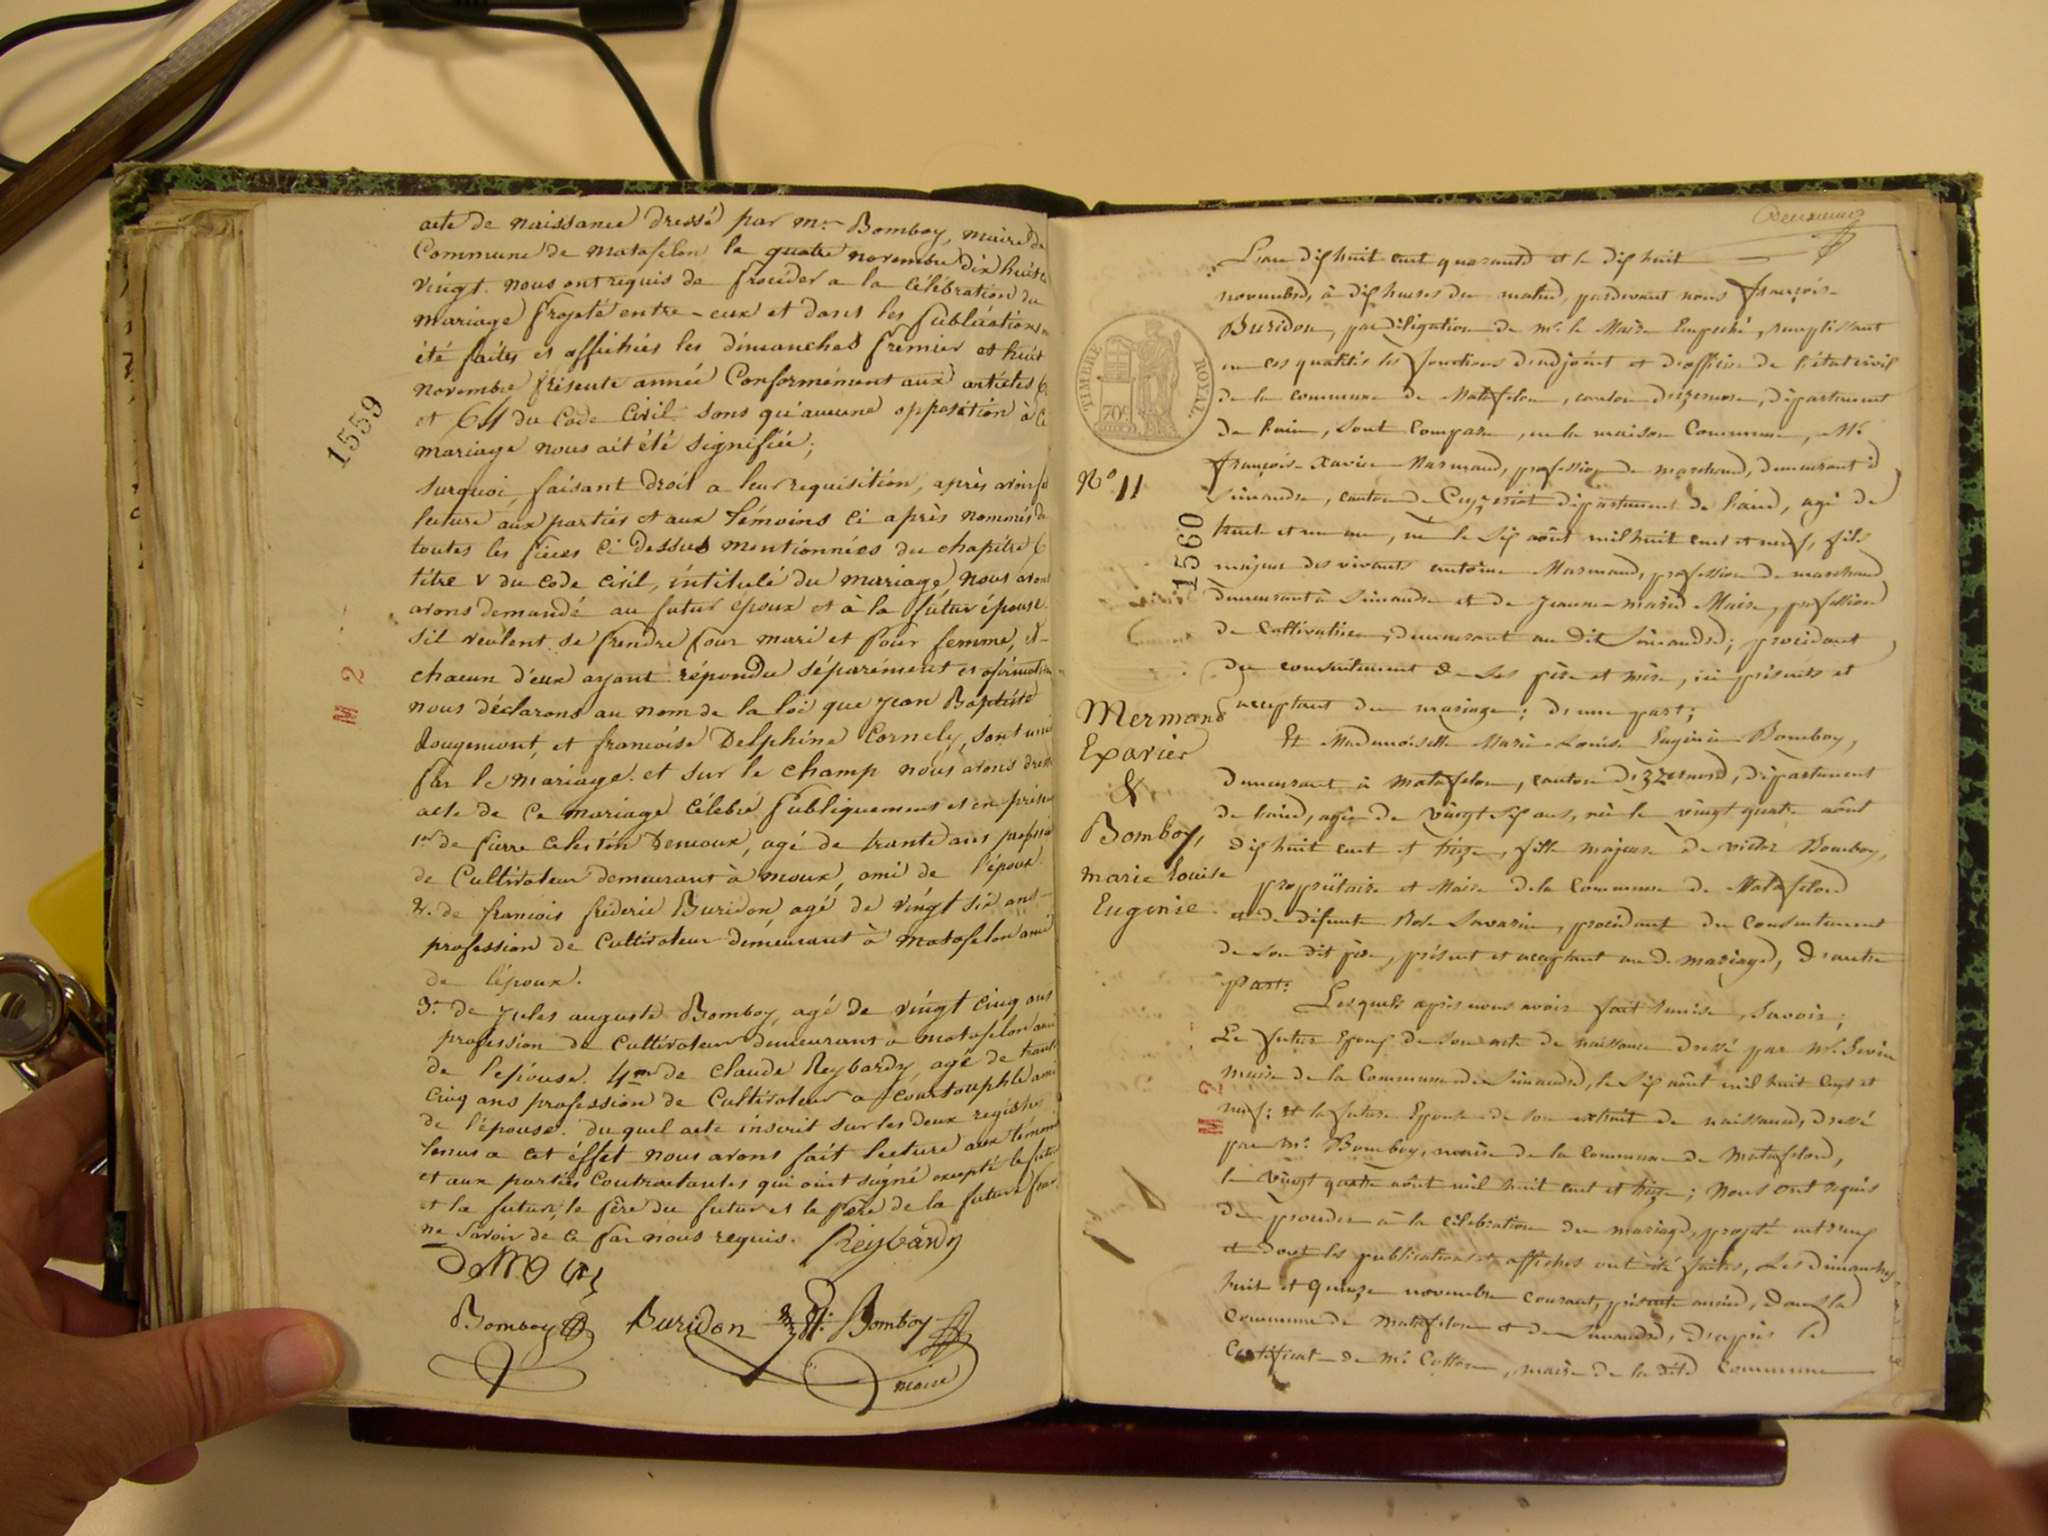 acte de naissance dressé par mr Bomboy, maire de
Commune de matafelon le quatre novembre dix huit c
vingt. nous ont requis de procéder a la célébration du
mariage projeté entre-eux et dont les publications
été faites et affichées les dimanches premier et huit
novembre présente année Conformément aux articles 6
et 64 du Code Civil sans qu'aucune opposition à ce
mariage nous ait été signifiée;
surquoi, faisant droit a leur requisition, après avoir fa
lecture aux parties et aux témoins ci après nommés de
toutes les pièces ci dessus mentionnées du chapitre 6
titre V du code civil, intitulé du mariage, nous avons
avons demandé au futur époux et à la futur épouse
s'il veulent se prendre pour mari et pour femme, et
chacun d'eux ayant répondu séparément et afirmati
nous déclarons au nom de la loi que jean Baptiste
Rougemont, et francoise Delphine Cornely, sont unis
par le mariage. et sur le champ nous avons dressé
acte de ce mariage célébré publiquement et en prése
1er de pierre celestin Demoux, agé de trante ans profession
de Cultivateur demeurant à moux, ami de l'époux.
2. de francois fréderic Buridon, agé de vingt six ans
profession de cultivateur demeurant à matafelon ami
de l'époux.
3. de jules auguste Bomboy, agé de vingt cinq ans
profession de cultivateur demeurant a matafelon ami
de l'épouse. 4me de claude Reybardy, agé de trante
cinq ans profession de cultivateur a courtouphle ami
de l'épouse. du quel acte inscrit sur les deux registres
tenus a cet éffet nous avons fait lecture aux témoins
et aux parties Contractantes qui ont signé excepté le futur
et la future, le père du futur et le père de la future pour
ne savoir de ce par nous requis. Reybardy
Bomboy Buridon Bomboy
maire
1559
M 2
Deuxieme
L'an dix huit cent quarante et le dix huit
novembre, à dix heures du matin, pardevant nous françois
Buridon, par déligation de mr. le Maire Empeché, remplissant
en ces qualités les fonctions d'adjoint et d'officier de l'état civil
de la commune de Matafelon, canton d'izernore, département
de l'ain, sont comparu, en la maison Commune, Mr.
françois-Xavier Marmand, profession de marchand, demeurant à
Simandre, canton de Ceyzeriat département de l'ain, agé de
trente et un ans, né le dix août mil huit cent et neuf, fils
majeur des vivants antoine Marmand, profession de marchand
demeurant à Simandre et de jeanne-marie Maire, profession
de cultivatrice, demeurant au dit Simandre; procédant
du consentement de ses père et mère, ici présents et
acceptant du mariage; d'une part;
Et Mademoiselle Marie-Louise Eugénie Bomboy,
demeurant à matafelon, canton d'izernore, département
de l'ain, agée de vingt sept ans, née le vingt quatre août
dix huit cent et treize, fille majeure de victor Bomboy,
propriétaire et Maire de la Commune de Matafelon
et de défunte Rose Savarin, procédant du Consentement
de son dit père, présent et acceptant au d. mariage, d'autre
part. Lesquels après nous avoir fait remise, savoir;
Le futur Epoux de son acte de naissance dressé par mr.
maire de la Commune de Simandre, le dix août mil huit cent et
neuf; et la future Epouse de son extrait de naissance, dressé
par mr. Bomboy, maire de la commune de Matafelon,
le vingt quatre août mil huit cent et treize; Nous ont requis
de procéder à la célébration du mariage, projeté entr'eux
et dont les publications et affiches ont été faites, Les dimanches
huit et quinze novembre courant, présente année, dans la
commune de matafelon et de Simandre, d'après le
Certificat de Mr. Cotton, maire de la dite Commune
TIMBRE ROYAL
70c
No 11
1560
Mermand
Exavier
&
Bomboy,
marie Louise
Eugenie
M 2